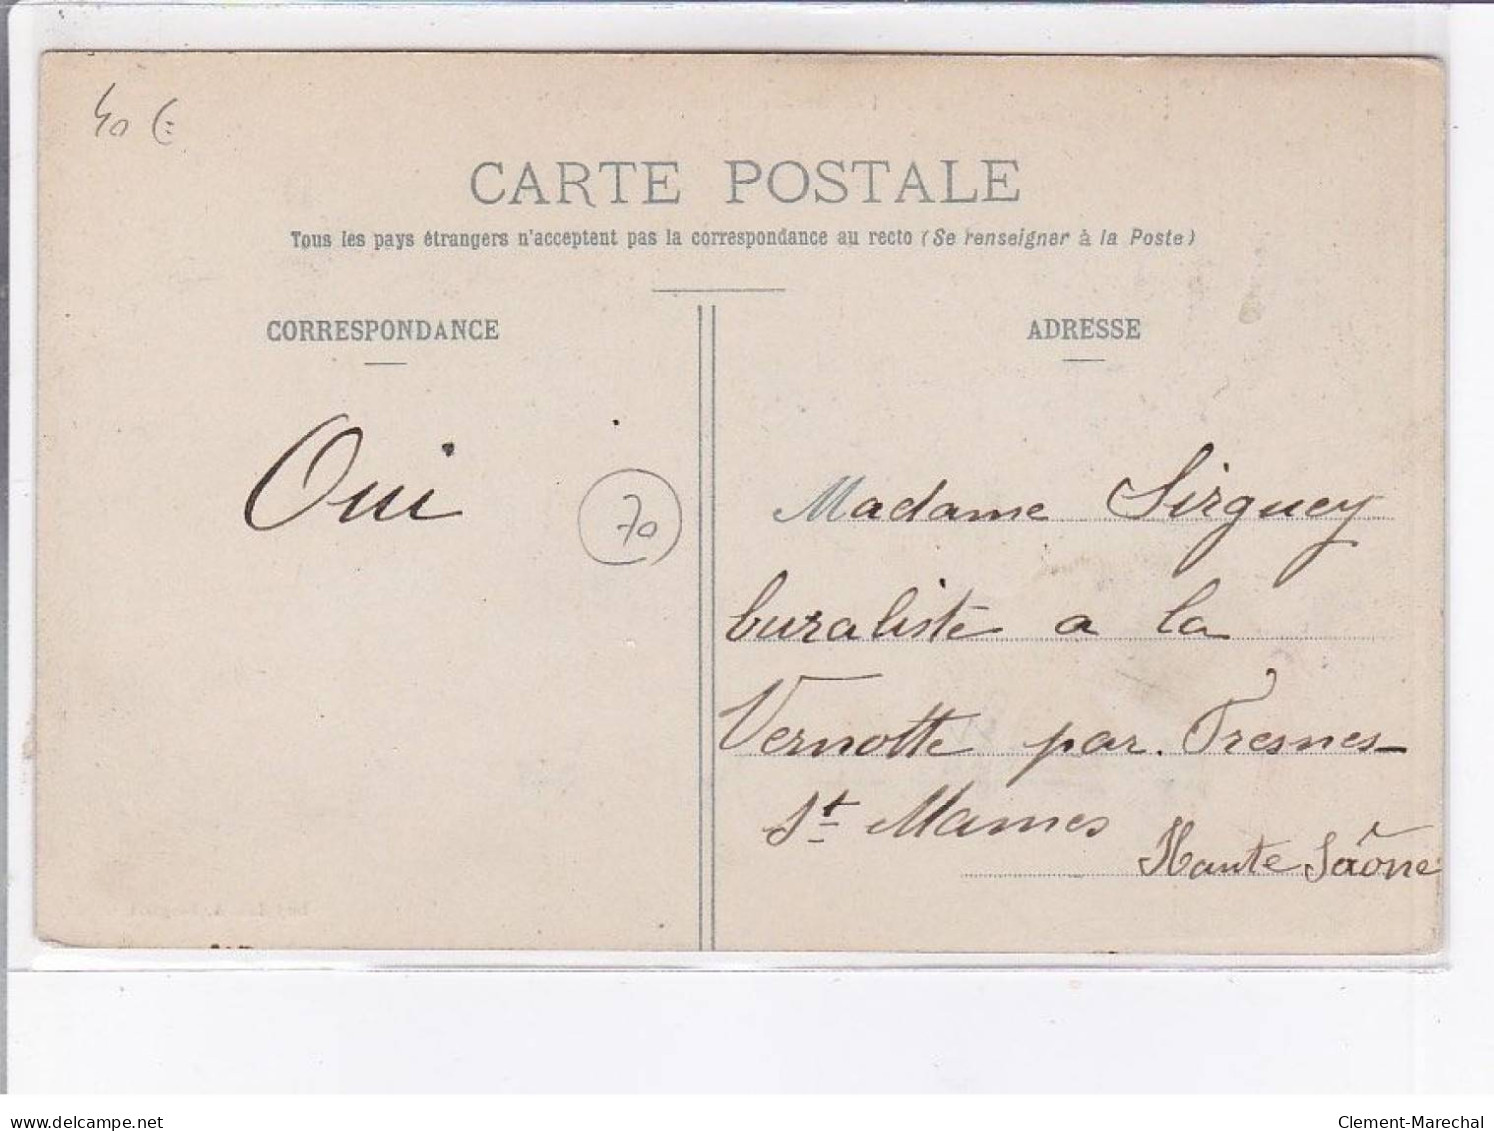 40 €
CARTE POSTALE
Tous les pays étrangers n'acceptent pas la correspondance au recto (Se renseigner à la Poste)
CORRESPONDANCE
Oui
70
ADRESSE
Madame Sirguey
buraliste a la
Vernotte par Fresnes-
St Mames
Haute Saône
delcampe.net
Clement-Marechal